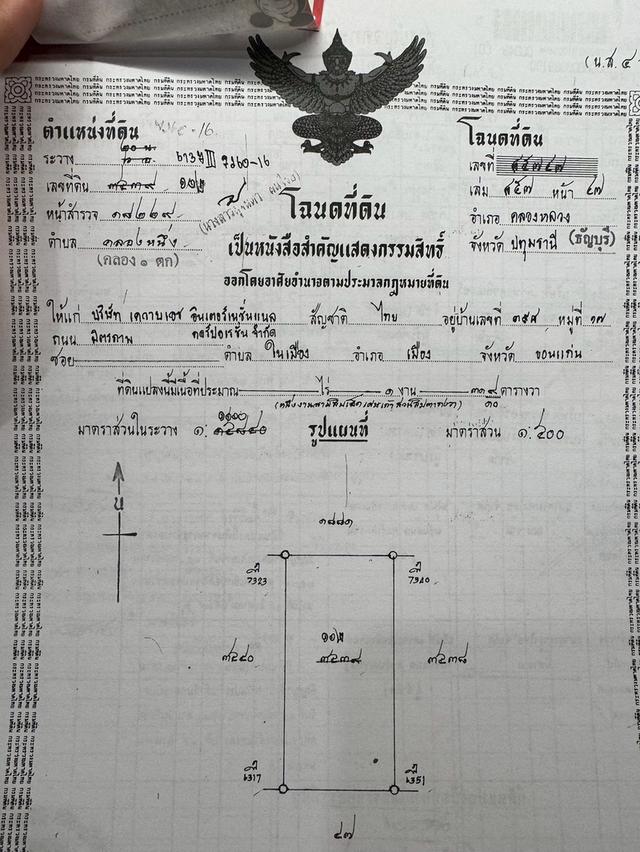 (น.ส. ๔
ตำแหน่งที่ดิน
ระวาง 5136 III 7360-16
เลขที่ดิน ๓๔๓๙ ๑๐๒
หน้าสำรวจ ๑๙๒๒๙
ตำบล คลองหนึ่ง
(คลอง ๑ ตก)
โฉนดที่ดิน
เลขที่
เล่ม ๔๕๗ หน้า ๔๗
อำเภอ คลองหลวง
จังหวัด ปทุมธานี (ธัญบุรี)
โฉนดที่ดิน
เป็นหนังสือสำคัญแสดงกรรมสิทธิ์
ออกโดยอาศัยอำนาจตามประมวลกฎหมายที่ดิน
ให้แก่ บริษัท เคาบเอช อินเตอร์เนชั่นแนล คอร์ปอเรชั่น จำกัด สัญชาติ ไทย อยู่บ้านเลขที่ ๓๙๘ หมู่ที่ ๑๗
ถนน มิตรภาพ
ซอย ตำบล ในเมือง อำเภอ เมือง จังหวัด ขอนแก่น
ที่ดินแปลงนี้มีเนื้อที่ประมาณ ไร่ ๑ งาน ตารางวา
มาตราส่วนในระวาง ๑: ๑๐๐๐ รูปแผนที่ มาตราส่วน ๑:๕๐๐
น
๑๘๘๑
ที่ 7323 ที่ 7340
๑๐๒
๓๔๔๐ ๓๔๓๙ ๓๔๓๘
ที่ 6317 ที่ 6351
๔๗